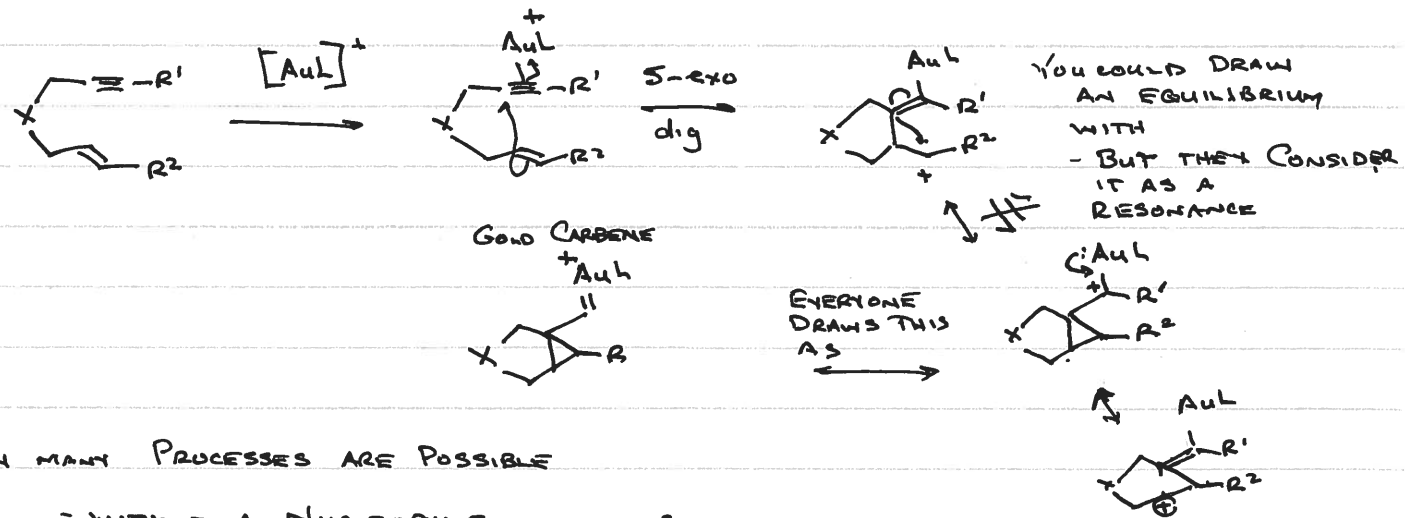 +
[AuL]+
AuL
5-exo
dig
X
R'
R²
X
R'
R²
AuL
R'
X
R²
+
YOU COULD DRAW
AN EQUILIBRIUM
WITH
- BUT THEY CONSIDER
IT AS A
RESONANCE
GOLD CARBENE
+
AuL
X
R
EVERYONE
DRAWS THIS
AS
AuL
+
R'
X
R²
AuL
R'
X
R²
+
MANY PROCESSES ARE POSSIBLE